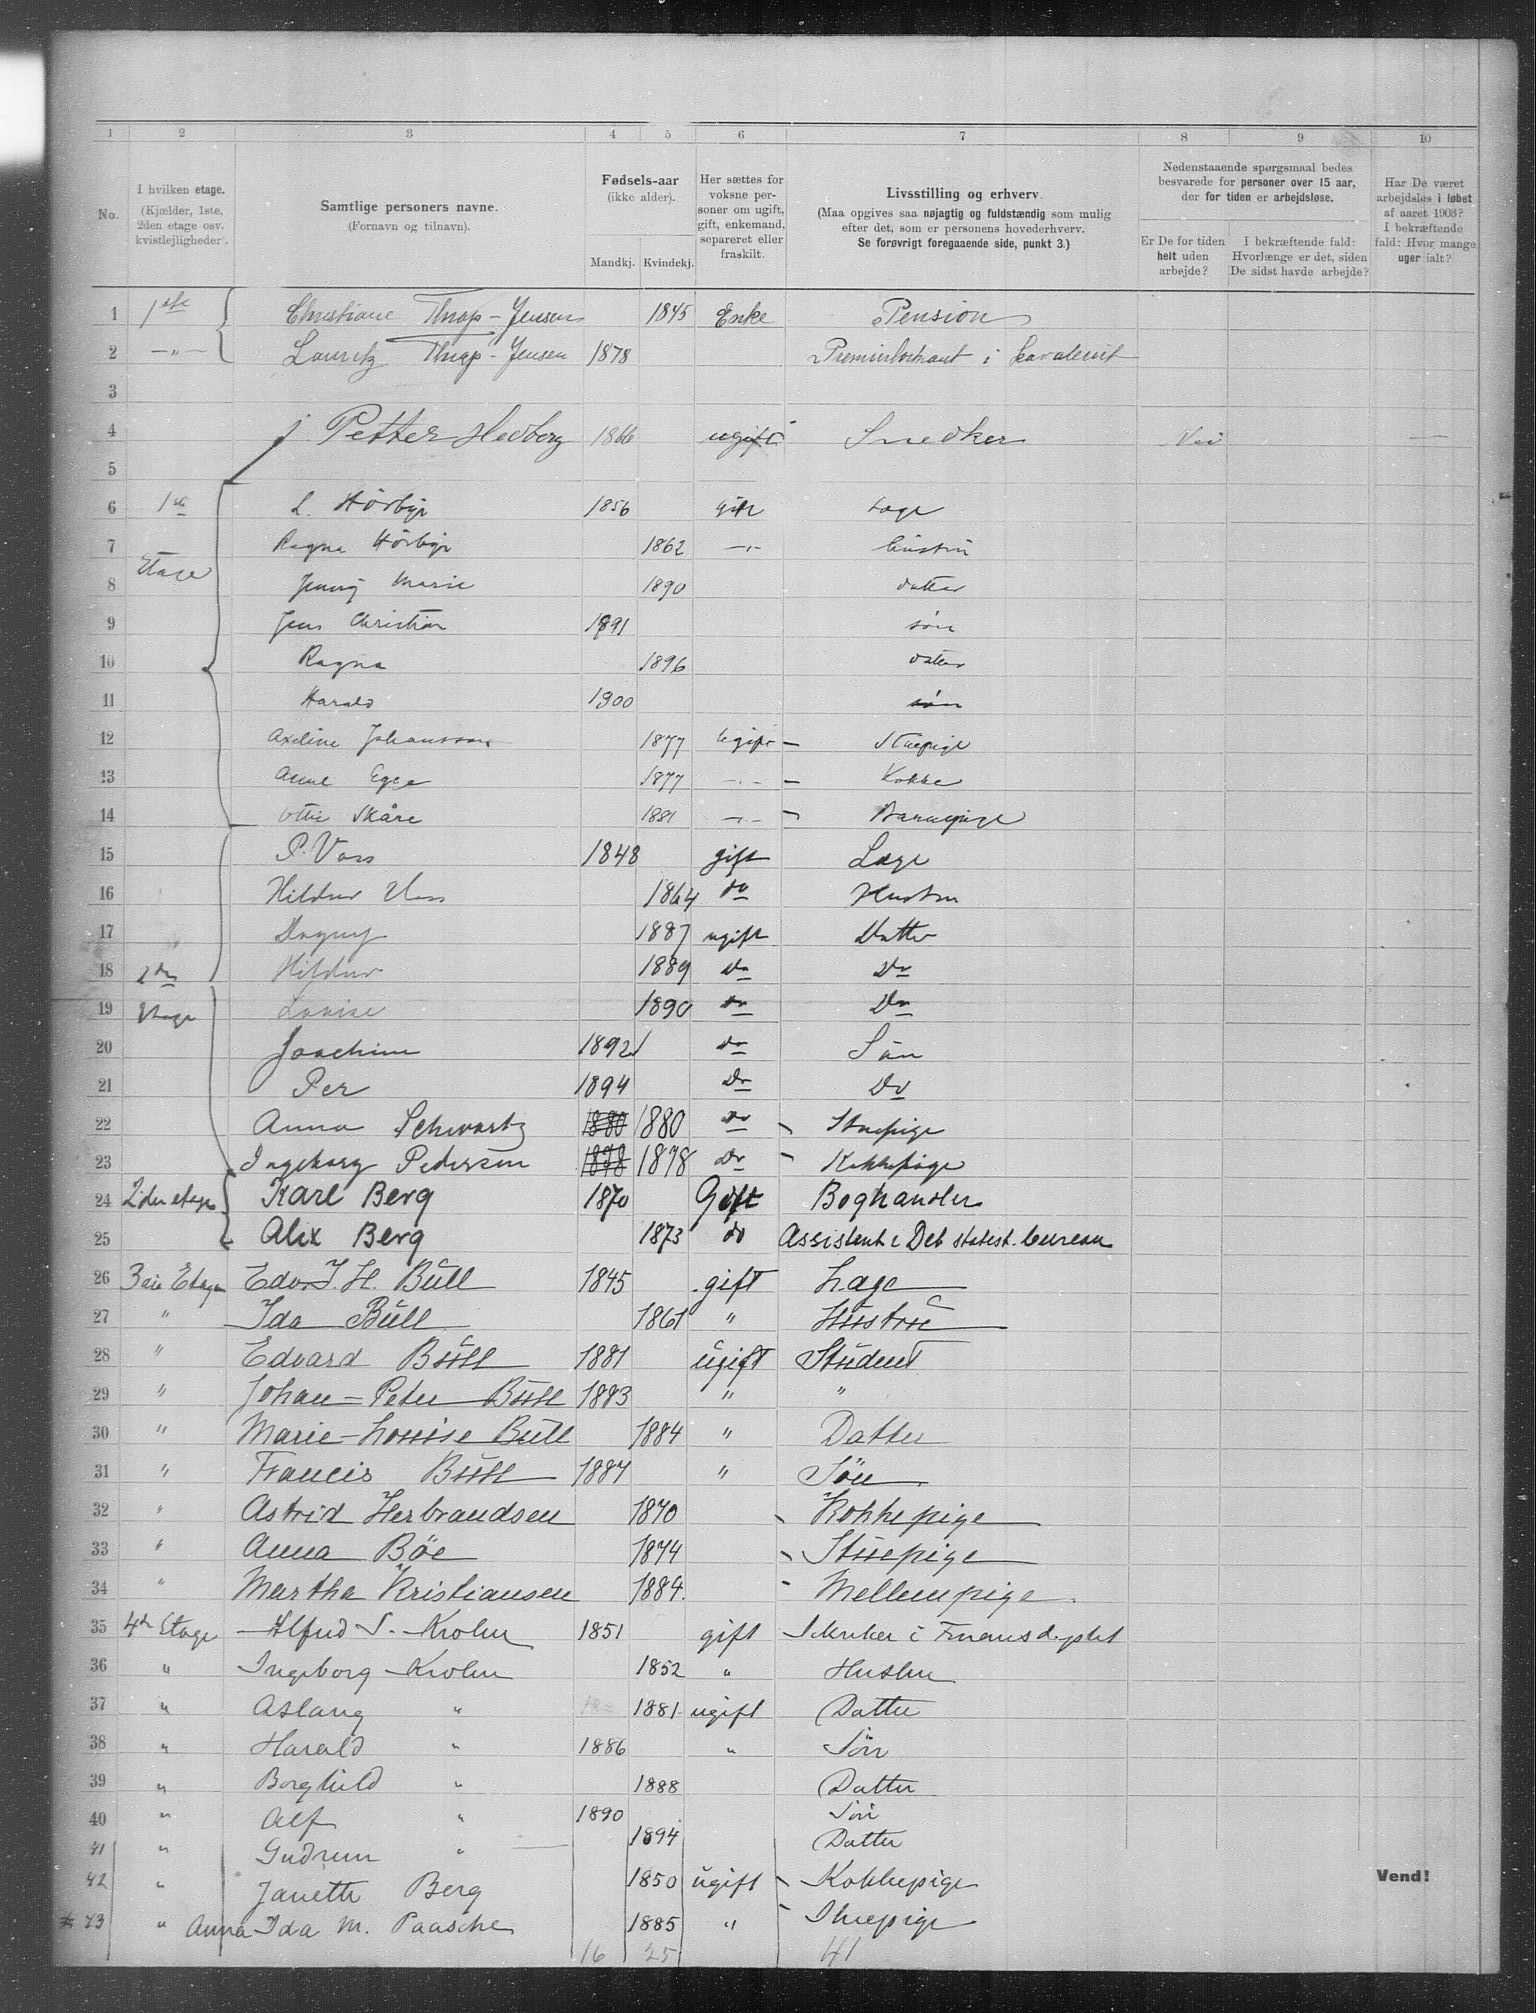 1 2 3 4 5 6 7 8 9 10
No.
I hvilken etage.
(Kjælder, 1ste,
2den etage osv.
kvistlejligheder.
Samtlige personers navne.
(Fornavn og tilnavn).
Fødsels-aar
(ikke alder).
Mandkj. Kvindekj.
Her sættes for
voksne per-
soner om ugift,
gift, enkemand,
separeret eller
fraskilt.
Livsstilling og erhverv.
(Maa opgives saa nøjagtig og fuldstændig som mulig
efter det, som er personens hovederhverv.
Se forøvrigt foregaaende side, punkt 3.)
Nedenstaaende spørgsmaal bedes
besvarede for personer over 15 aar,
der for tiden er arbejdsløse.
Er De for tiden
helt uden
arbejde?
I bekræftende fald:
Hvorlænge er det, siden
De sidst havde arbejde?
Har De været
arbejdsløs i løbet
af aaret 1903?
I bekræftende
fald: Hvor mange
uger ialt?
1 1ste Christiane Thrap-Jensen 1845 Enke Pension
2 —"— Lauritz Thrap-Jensen 1878 i
3
4 Petter Hedberg 1866 ugift Snedker Nei —
5
6 1ste L. Hörbye 1856 gift Læge
7 Ragna Hörbye 1862 —"— hustru
Etage
8 Jenny Marie 1890 datter
9 Jens Christian 1891 søn
10 Ragna 1896 datter
11 Harald 1900 søn
12 Axeline Johansson 1877 ugift — Stuepige
13 Anne Egge 1877 —"— — Kokke
14 Ottie Skåre 1881 —"— — Barnepige
15 P. Voss 1848 gift Læge
16 Hildur Voss 1864 do Hustru
17 Dagny 1887 ugift Datter
18 2den Hildur 1889 Do Do
19 Etage Louise 1890 do Do
20 Joachim 1892 do Søn
21 Per 1894 Do Do
22 Anna Schwartz 1880 1880 do Stuepige
23 Ingeborg Pedersen 1878 1878 Do Kokkepige
24 2den etage Karl Berg 1870 Gift Boghandler
25 Alix Berg 1873 do Assistent i Det statist. bureau
26 3die Etage Edv. I. H. Bull 1845 gift Læge
27 " Ida Bull 1861 " Hustru
28 " Edvard Bull 1881 ugift Student
29 " Johan-Peter Bull 1883 " "
30 " Marie-Louise Bull 1884 " Datter
31 " Francis Bull 1887 " Søn
32 " Astrid Herbrandsen 1870 Kokkepige
33 " Anna Böe 1874 Stuepige
34 " Martha Kristiansen 1884. Mellempige.
35 4de Etage Alfred S. Krohn 1851 gift Sekretær i Finansdeptet
36 " Ingeborg Krohn 1852 " Hustru
37 " Aslaug " 1881 ugift Datter
38 " Harald " 1886 " Søn
39 " Borghild " 1888 Datter
40 " Alf " 1890 Søn
41 " Gudrun " 1894 Datter
42 " Janette Berg 1850 ugift Kokkepige
43 " Anna Ida M. Paasche 1885 " Stuepige
Vend!
16 25 41